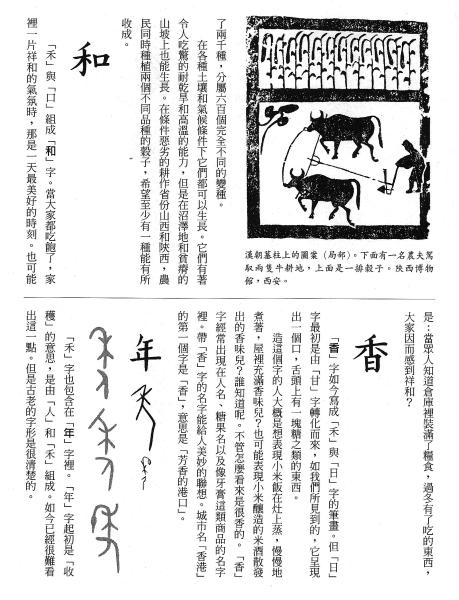 漢朝墓柱上的圖案（局部）。下面有一名農夫駕
馭兩隻牛耕地，上面是一排穀子。陝西博物
館，西安。
了兩千種，分屬六百個完全不同的變種。
在各種土壤和氣候條件下它們都可以生長。它們有著
令人吃驚的耐乾旱和高溫的能力，但是在沼澤地和貧瘠的
山坡上也能生長。在條件惡劣的耕作省份山西和陝西，農
民同時種植兩個不同品種的穀子，希望至少有一種能有所
收成。
和
「禾」與「口」組成「和」字。當大家都吃飽了，家
裡一片祥和的氣氛時，那是一天最美好的時刻。也可能
是：當眾人知道倉庫裡裝滿了糧食，過冬有了吃的東西，
大家因而感到祥和？
香
「香」字如今寫成「禾」與「日」字的筆畫。但「日」
字最初是由「甘」字轉化而來，如我們所見到的，它呈現
出一個口，舌頭上有一塊糖之類的東西。
造這個字的人大概是想表現小米飯在灶上蒸，慢慢地
煮著，屋裡充滿香味兒？也可能表現小米釀造的米酒散發
出的香味兒？誰知道呢。不管怎麼看來是很香的。「香」
字經常出現在人名、糖果名以及像牙膏這類商品的名字
裡。帶「香」字的名字能給人美妙的聯想。城市名「香港」
的第一個字是「香」，意思是「芳香的港口」。
年
「禾」字也包含在「年」字裡。「年」字起初是「收
穫」的意思，是由「人」和「禾」組成。如今已經很難看
出這一點。但是古老的字形是很清楚的。